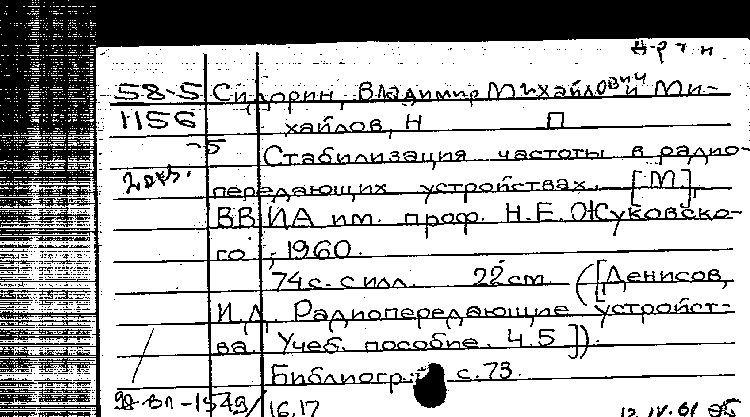 58-5 Сидорин, Владимир Михайлович и Ми-
1156 хайлов, Н П
-5 Стабилизация частоты в радио-
2 экз. передающих устройствах. [М],
ВВИА им. проф. Н.Е. Жуковско-
го, 1960.
74 с. с илл. 22 cm. ([Денисов,
И.Д. Радиопередающие устройст-
ва. Учеб. пособие. Ч.5]).
Библиогр. с. 73.
16,17